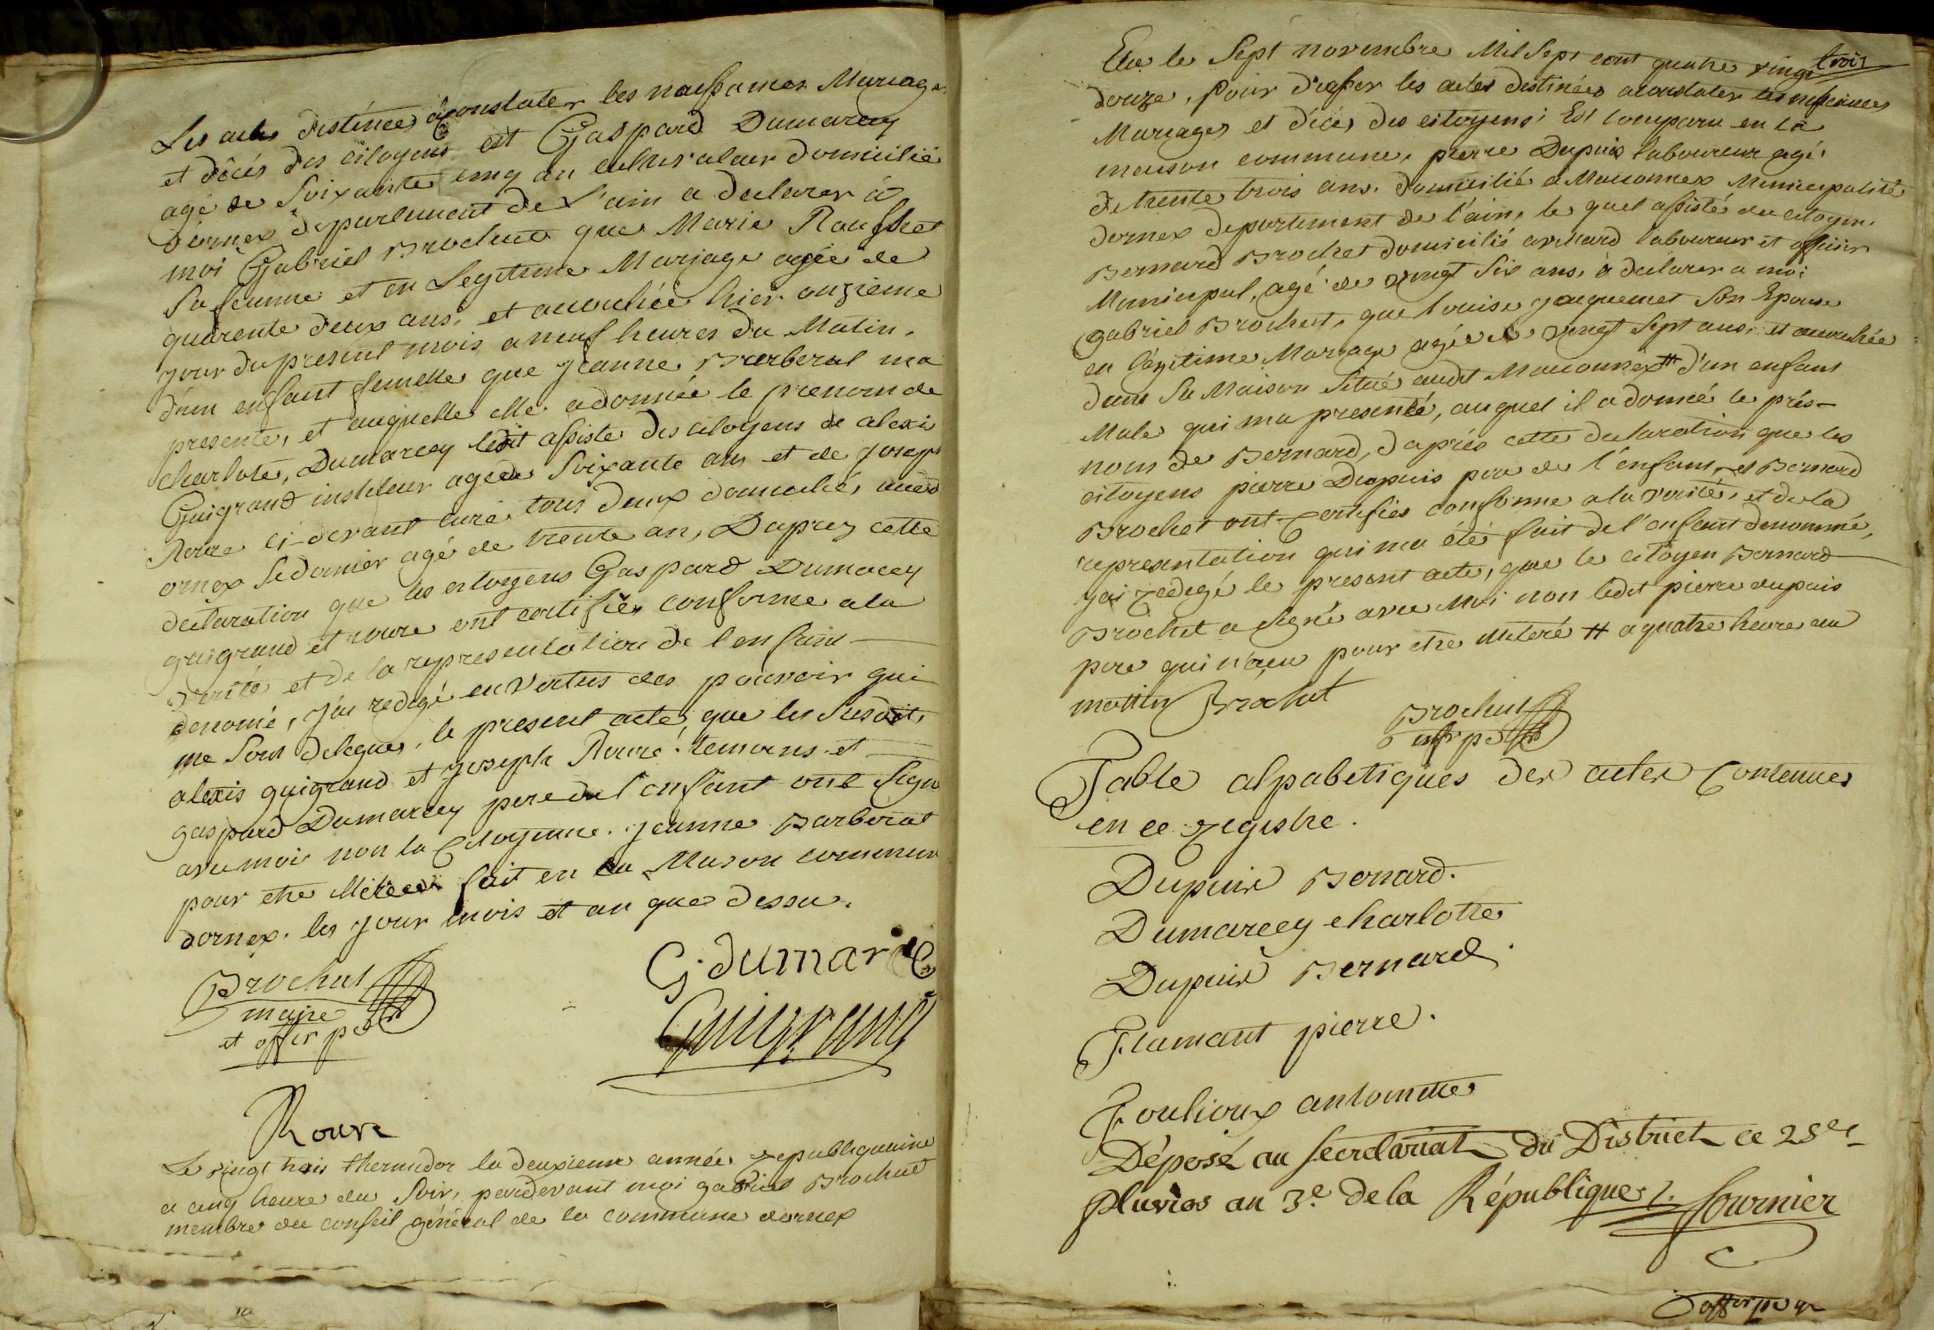 Les actes déstinées à constater les naissances Mariages
et décés des citoyens est Gaspard Dumarcey
agé de soixante cinq an cultivataur domicilié
dornex département de l'ain a declarer à
moi Gabriel Brochut que Marie
sa femme et en Legitime Mariage agée de
quarente deux ans, et accouchée hier onzieme
jour du present mois a neuf heures du Matin,
d'un enfant femelle que Jeanne Barberat ma
presenté, et auquelle elle a donnée le prenom de
charlote, Dumarcey ledit assisté des citoyens de alexi
Guigrand instituteur agé de soixante ans et de joseph
Roure ci-devant curé tous deux domicilié, audit
ornex le dernier agé de trente an, Daprez cette
déclaration que les citoyens Gaspard Dumarcey
guigrand et roure ont certifiés conforme a la
verité et de la representation de l'enfant
denomé, j'ai redegé en Vertus des pouvoir qui
me sont delegués, le present acte que les susdits
alexis guigrand et joseph Roure temoins et
gaspard Dumarcey pere de l'enfant ont signé
avec moi non la Citoyenne jeanne Barberat
pour etre fait en la Maison commune
dornex les jour mois et an que dessu.
Brochut
maire
et offir pc
G. dumarcé
Guigrand
Roure
Le vingt trois thermidor la deuxieme année republiquaine
a cinq heure du soir, pardevant moi gabriel Brochut
membre du conseil général de la commune dornex
trois
Elu le sept novembre Mil sept cent quatre vingt
douze, pour dresser les actes destinées a constater les naissances
Mariages et décés des citoyens; Est comparu en la
maison commune, pierre Dupuis laboureur agé
de trente trois ans, domicilié a Maconnex Municipalité
dornex departement de l'ain, le quel assisté du citoyen
Bernard Brochet domicilié laboureur et officier
Municipal, agé de vingt six ans, à declarer a moi
gabriel Brochut, que louise jaquemet son Epouse
en légitime Mariage agée de vingt sept ans, et accouchée
dans sa Maison située audit Maconnex # d'un enfant
Male qui ma presenté, auquel il a donné le prés-
nom de Bernard, d'aprés cette declaration que les
citoyens pierre Dupuis pere de l'enfant, et Bernard
Brochet ont certifiés conforme a la verité, et de la
representation qui ma été fait de l'enfant denommé,
j'ai redegé le present acte, que le citoyen Bernard
Brochet a signé avec Moi non ledit pierre dupuis
pere qui n'a pour etre # a quatre heure du
mattin Brochet
Brochut
offir pc
Table alpabetiques des actes Contenues
en ce registre.
Dupuis Bonard.
Dumarcey charlotte
Dupuis Bernard.
Flamant pierre.
Foulioux antoinette
Déposé au secretariat du District ce 25e
Pluvios an 3.e de la République
fournier